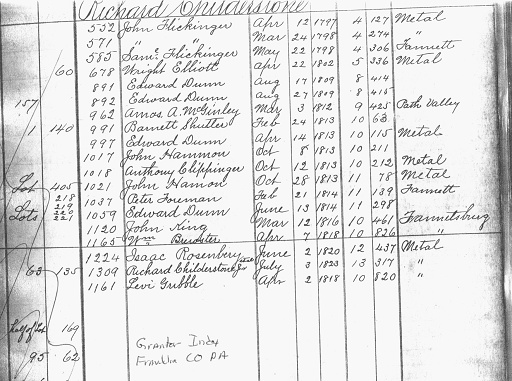 Richard Childerstone
552 John Flickinger Apr 12 1797 4 127 Metal
571 " " Mar 24 1798 4 274 "
585 Saml. Flickinger May 22 1798 4 306 Fannett
60 678 Wright Elliott Apr 22 1802 5 336 Metal
891 Edward Dunn Aug 17 1809 8 414
157 892 Edward Dunn Aug 27 1809 8 415
962 Amos. A. McGinley Mar 3 1812 9 425 Path Valley
1 140 991 Barnett Shutter Feb 24 1813 10 63
997 Edward Dunn Apr 14 1813 10 115 Metal
1017 John Hammon Oct 8 1813 10 211
1018 Anthony Clippinger Oct 12 1813 10 212 Metal
Lot 405 1021 John Hamon Oct 28 1813 11 78 Metal
218
219 1037 Peter Foreman Feb 21 1814 11 139 Fannett
Lots 220
221 1059 Edward Dunn June 13 1814 11 298
1120 John King Mar 12 1816 10 461 Fannetsburg
1165 Wm. Apr 7 1818 10 826 "
1224 Isaac Rosenbery June 2 1820 12 437 Metal
63 135 1309 Richard Childerstone July 3 1823 13 317 "
1161 Levi Gribble Apr 2 1818 10 820 "
Half of Lot 169
Grantor Index
95 62 Franklin CO PA